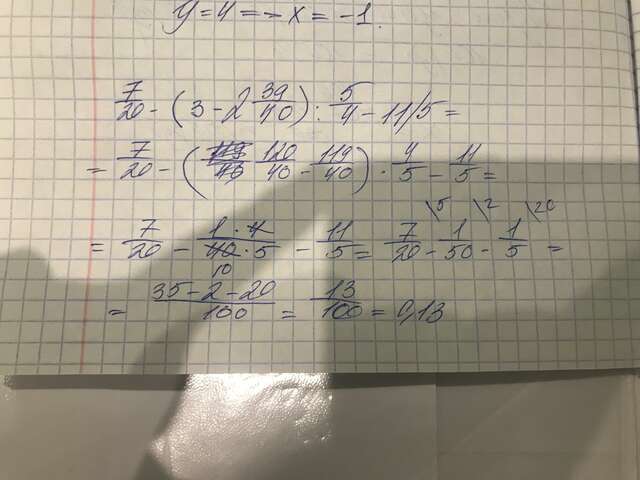 y=4=-x=-1.
7/20 - (3 - 2 39/40) : 5/4 - 11/5 =
= 7/20 - (120/40 - 119/40) · 4/5 - 11/5 =
= 7/20 - 1·4/40·5 - 11/5 = 7/20 - 1/50 - 1/5 =
10 \5 \2 \20
= 35-2-20/100 = 13/100 = 0,13